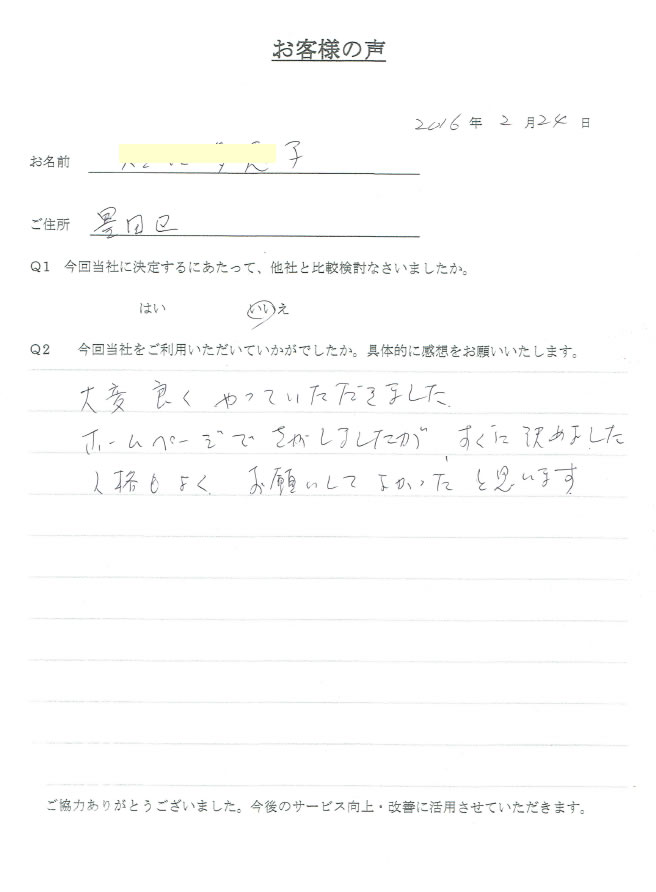 お客様の声
2016年 2月24日
お名前 子
ご住所 墨田区
Q1 今回当社に決定するにあたって、他社と比較検討なさいましたか。
はい いいえ
Q2 今回当社をご利用いただいていかがでしたか。具体的に感想をお願いいたします。
大変 良く やっていただきました
ホームページで さがしましたが すぐに 決めました
人格もよく お願いして よかった と思います
ご協力ありがとうございました。今後のサービス向上・改善に活用させていただきます。